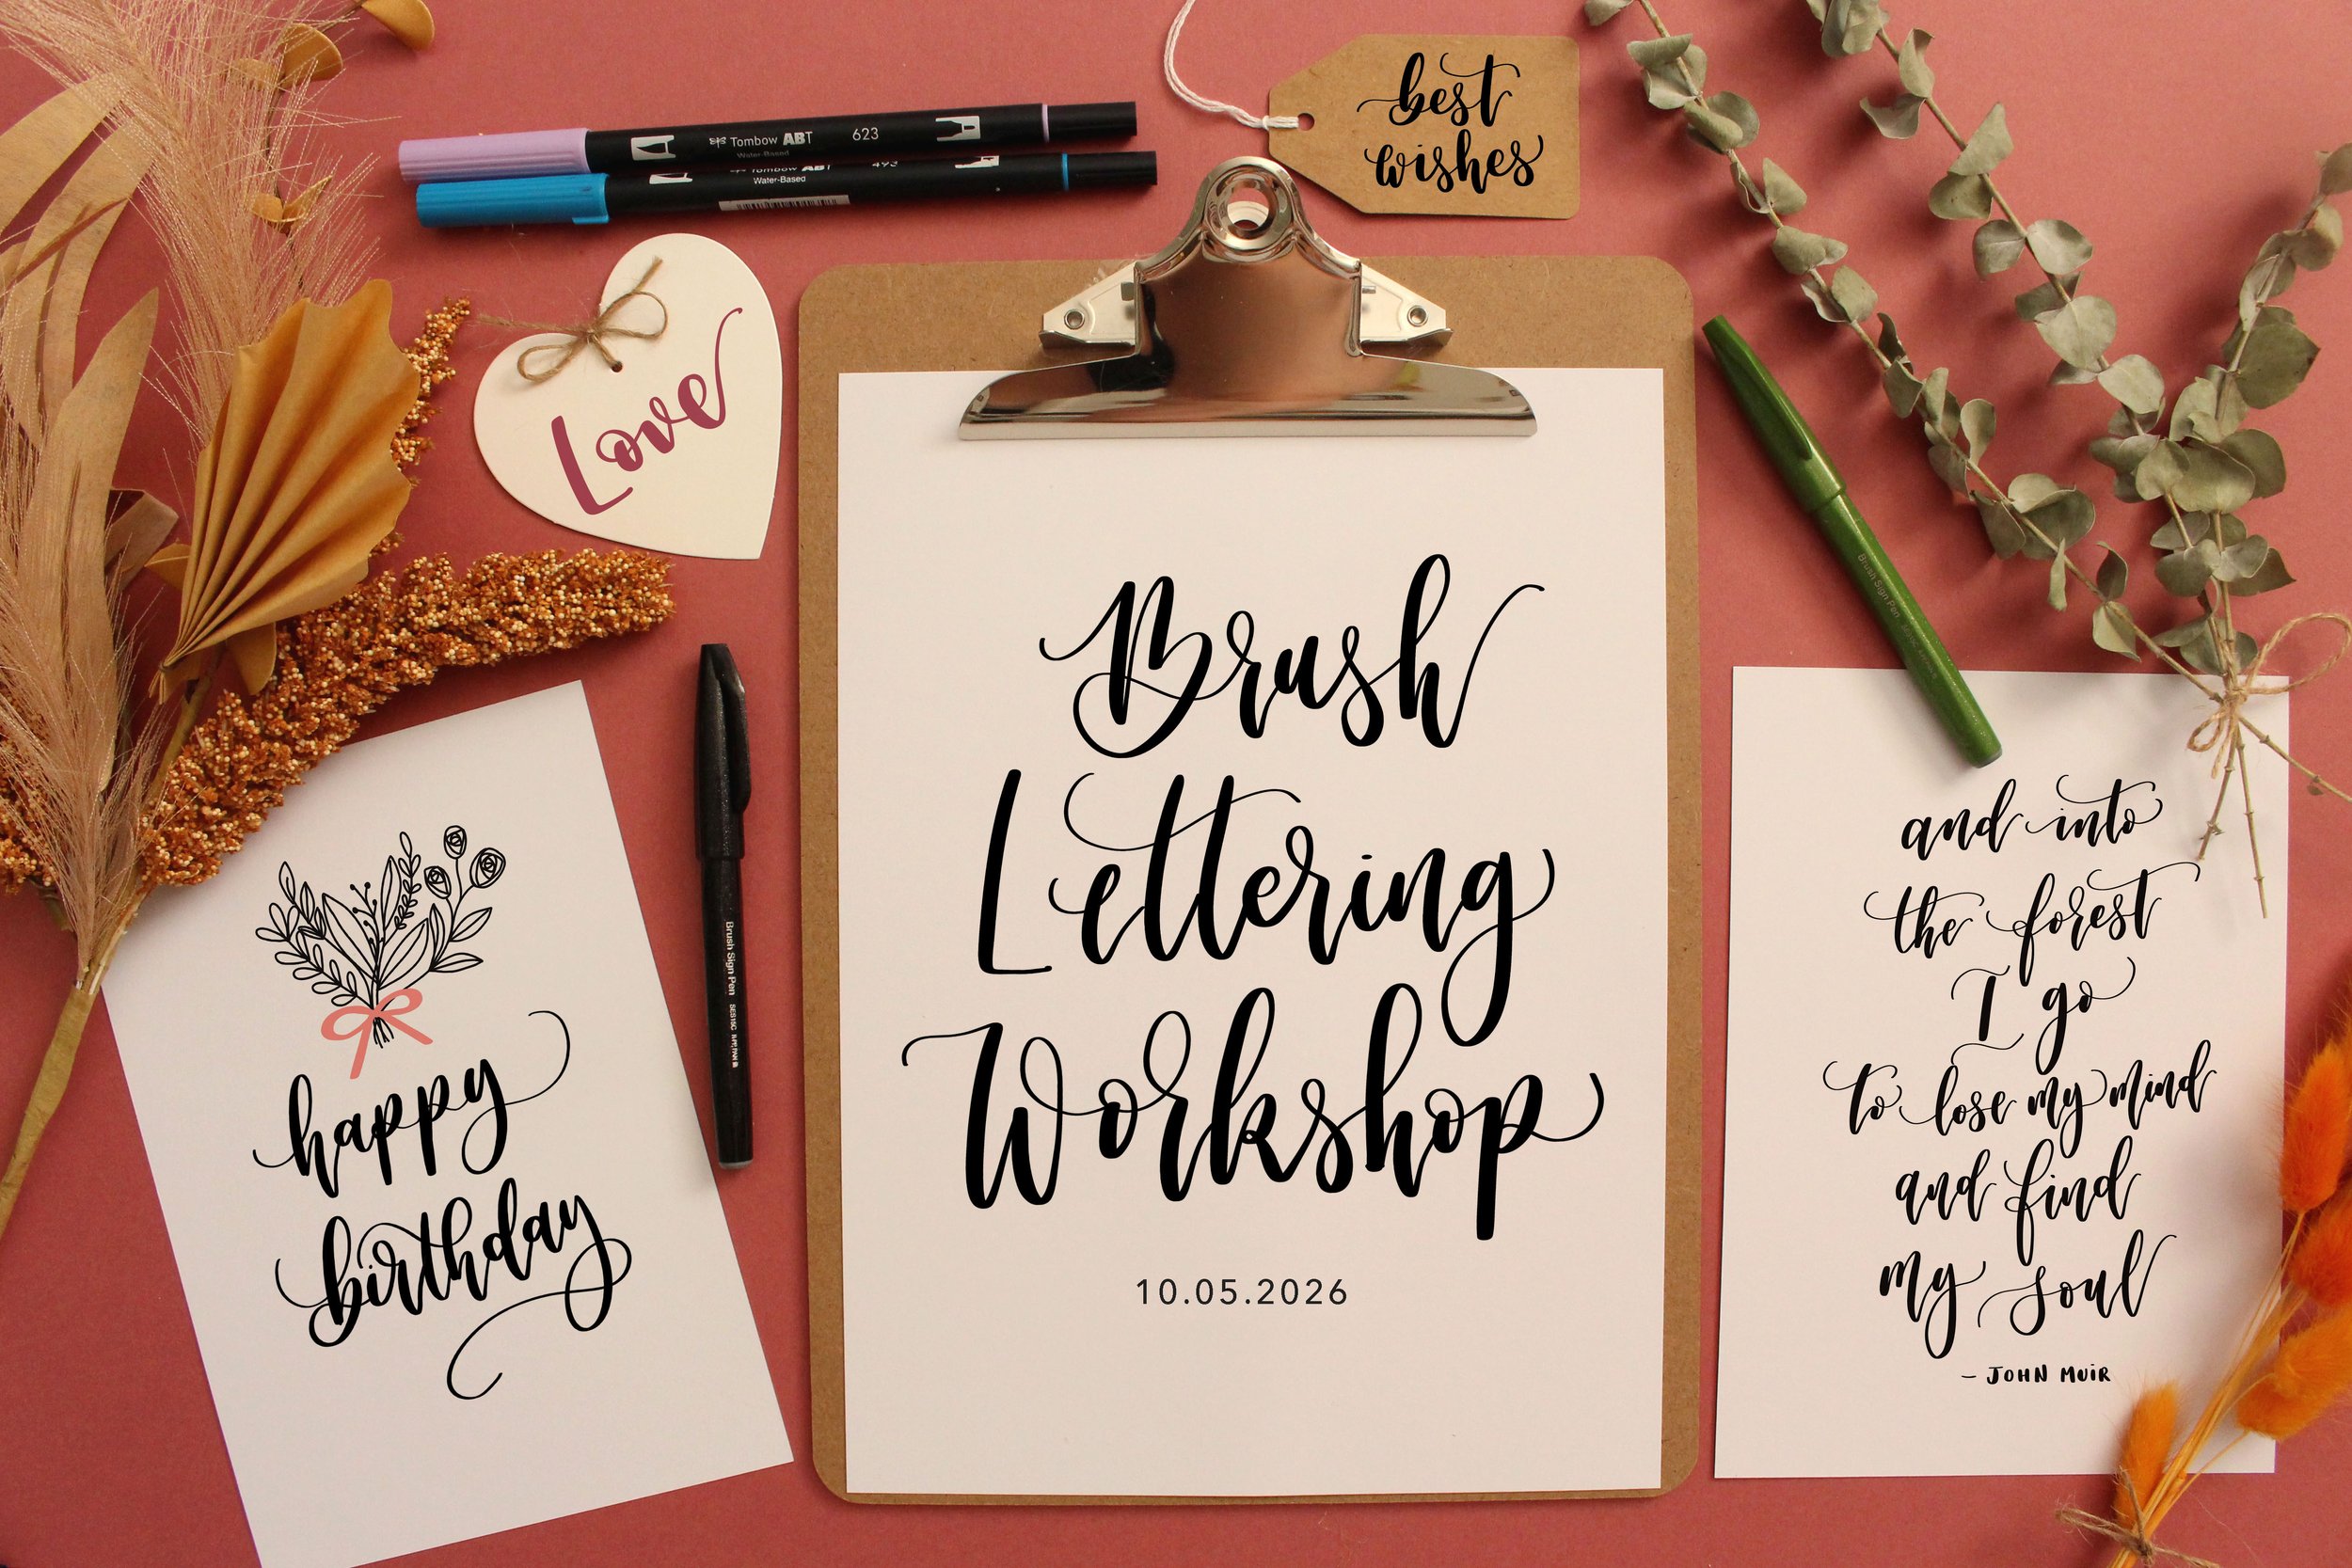 Tombow ABT 623
Water-Based
Tombow ABT 493
Water-Based
best
wishes
Love
Brush
Lettering
Workshop
10.05.2026
happy
birthday
Brush Sign Pen
Brush Sign Pen
and into
the forest
I go
to lose my mind
and find
my soul
– JOHN MUIR